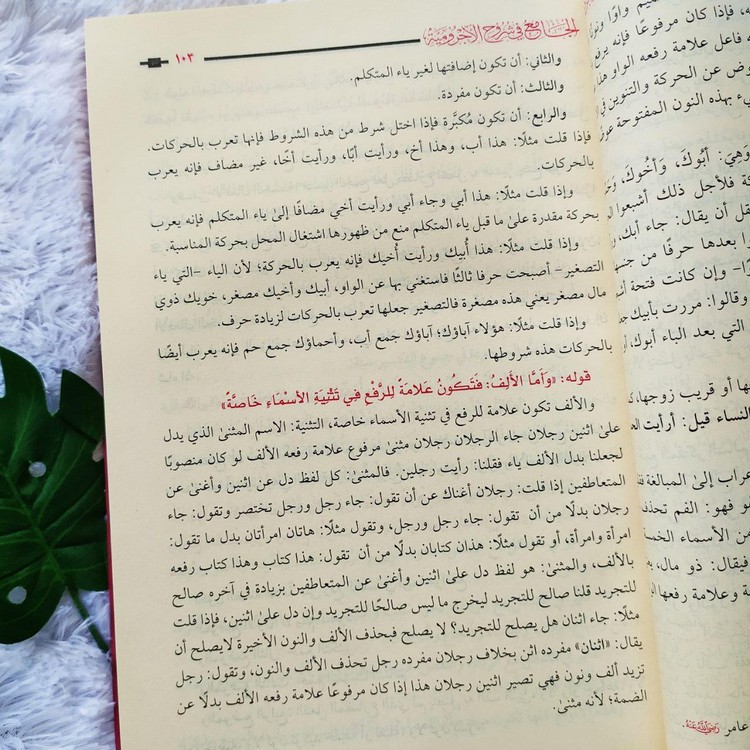 الجامع في شروح الآجرومية
١٠٣
والثاني: أن تكون إضافتها لغير ياء المتكلم.
والثالث: أن تكون مفردة.
والرابع: أن تكون مُكبَّرة فإذا اختل شرط من هذه الشروط فإنها تعرب بالحركات.
فإذا قلت مثلًا: هذا أب، وهذا أخ، ورأيت أبًا، ورأيت أخًا، غير مضاف فإنه يعرب
بالحركات.
وإذا قلت مثلًا: هذا أبي وجاء أبي ورأيت أخي مضافًا إلىٰ ياء المتكلم فإنه يعرب
بحركة مقدرة علىٰ ما قبل ياء المتكلم منع من ظهورها اشتغال المحل بحركة المناسبة.
وإذا قلت مثلًا: هذا أُبيك ورأيت أُخيك فإنه يعرب بالحركة؛ لأن الياء –التي ياء
التصغير– أصبحت حرفا ثالثًا فاستغني بها عن الواو، أبيك وأخيك مصغر، خويك ذوي
مال مصغر يعني هذه مصغرة فالتصغير جعلها تعرب بالحركات لزيادة حرف.
وإذا قلت مثلًا: هؤلاء آباؤك؛ آباؤك جمع أب، وأحماؤك جمع حم فإنه يعرب أيضًا
بالحركات هذه شروطها.
قوله: «وَأَمَّا الأَلِفُ: فَتَكُونُ عَلامَةً لِلرَّفْعِ فِي تَثْنِيَةِ الأَسْمَاءِ خَاصَّةً»
والألف تكون علامة للرفع في تثنية الأسماء خاصة، التثنية: الاسم المثنىٰ الذي يدل
علىٰ اثنين رجلان جاء الرجلان رجلان مثنىٰ مرفوع علامة رفعه الألف لو كان منصوبًا
لجعلنا بدل الألف ياء فقلنا: رأيت رجلين. فالمثنىٰ: كل لفظ دل عن اثنين وأغنىٰ عن
المتعاطفين إذا قلت: رجلان أغناك عن أن تقول: جاء رجل ورجل تختصر وتقول: جاء
رجلان بدلًا من أن تقول: جاء رجل ورجل، وتقول مثلًا: هاتان امرأتان بدل ما تقول:
امرأة وامرأة، أو تقول مثلًا: هذان كتابان بدلًا من أن تقول: هذا كتاب وهذا كتاب رفعه
بالألف، والمثنىٰ: هو لفظ دل علىٰ اثنين وأغنىٰ عن المتعاطفين بزيادة في آخره صالح
للتجريد قلنا صالح للتجريد ليخرج ما ليس صالحًا للتجريد وإن دل علىٰ اثنين، فإذا قلت
مثلًا: جاء اثنان هل يصلح للتجريد؟ لا يصلح فبحذف الألف والنون الأخيرة لايصلح أن
يقال: «اثنان» مفرده اثن بخلاف رجلان مفرده رجل تحذف الألف والنون، وتقول: رجل
تزيد ألف ونون فهي تصير اثنين رجلان هذا إذا كان مرفوعًا علامة رفعه الألف بدلًا عن
الضمة؛ لأنه مثنىٰ.
فإذا كان مرفوعًا فإنه يرفع
فاعل علامة رفعه الواو
عن الحركة والتنوين في
بهذه النون المفتوحة
وَهِيَ: أَبُوكَ، وَأَخُوكَ،
فلأجل ذلك أشبعوا
أن يقال: جاء أبك،
بعدها حرفًا من
وإن كانت فتحة
وقالوا: مررت بأبيك
التي بعد الباء أبوك،
أو قريب زوجها،
النساء قيل: أرأيت
إلىٰ المبالغة
فهو: الفم
من الأسماء
فيقال: ذو مال،
وعلامة رفعها
عامر رضي الله عنه.